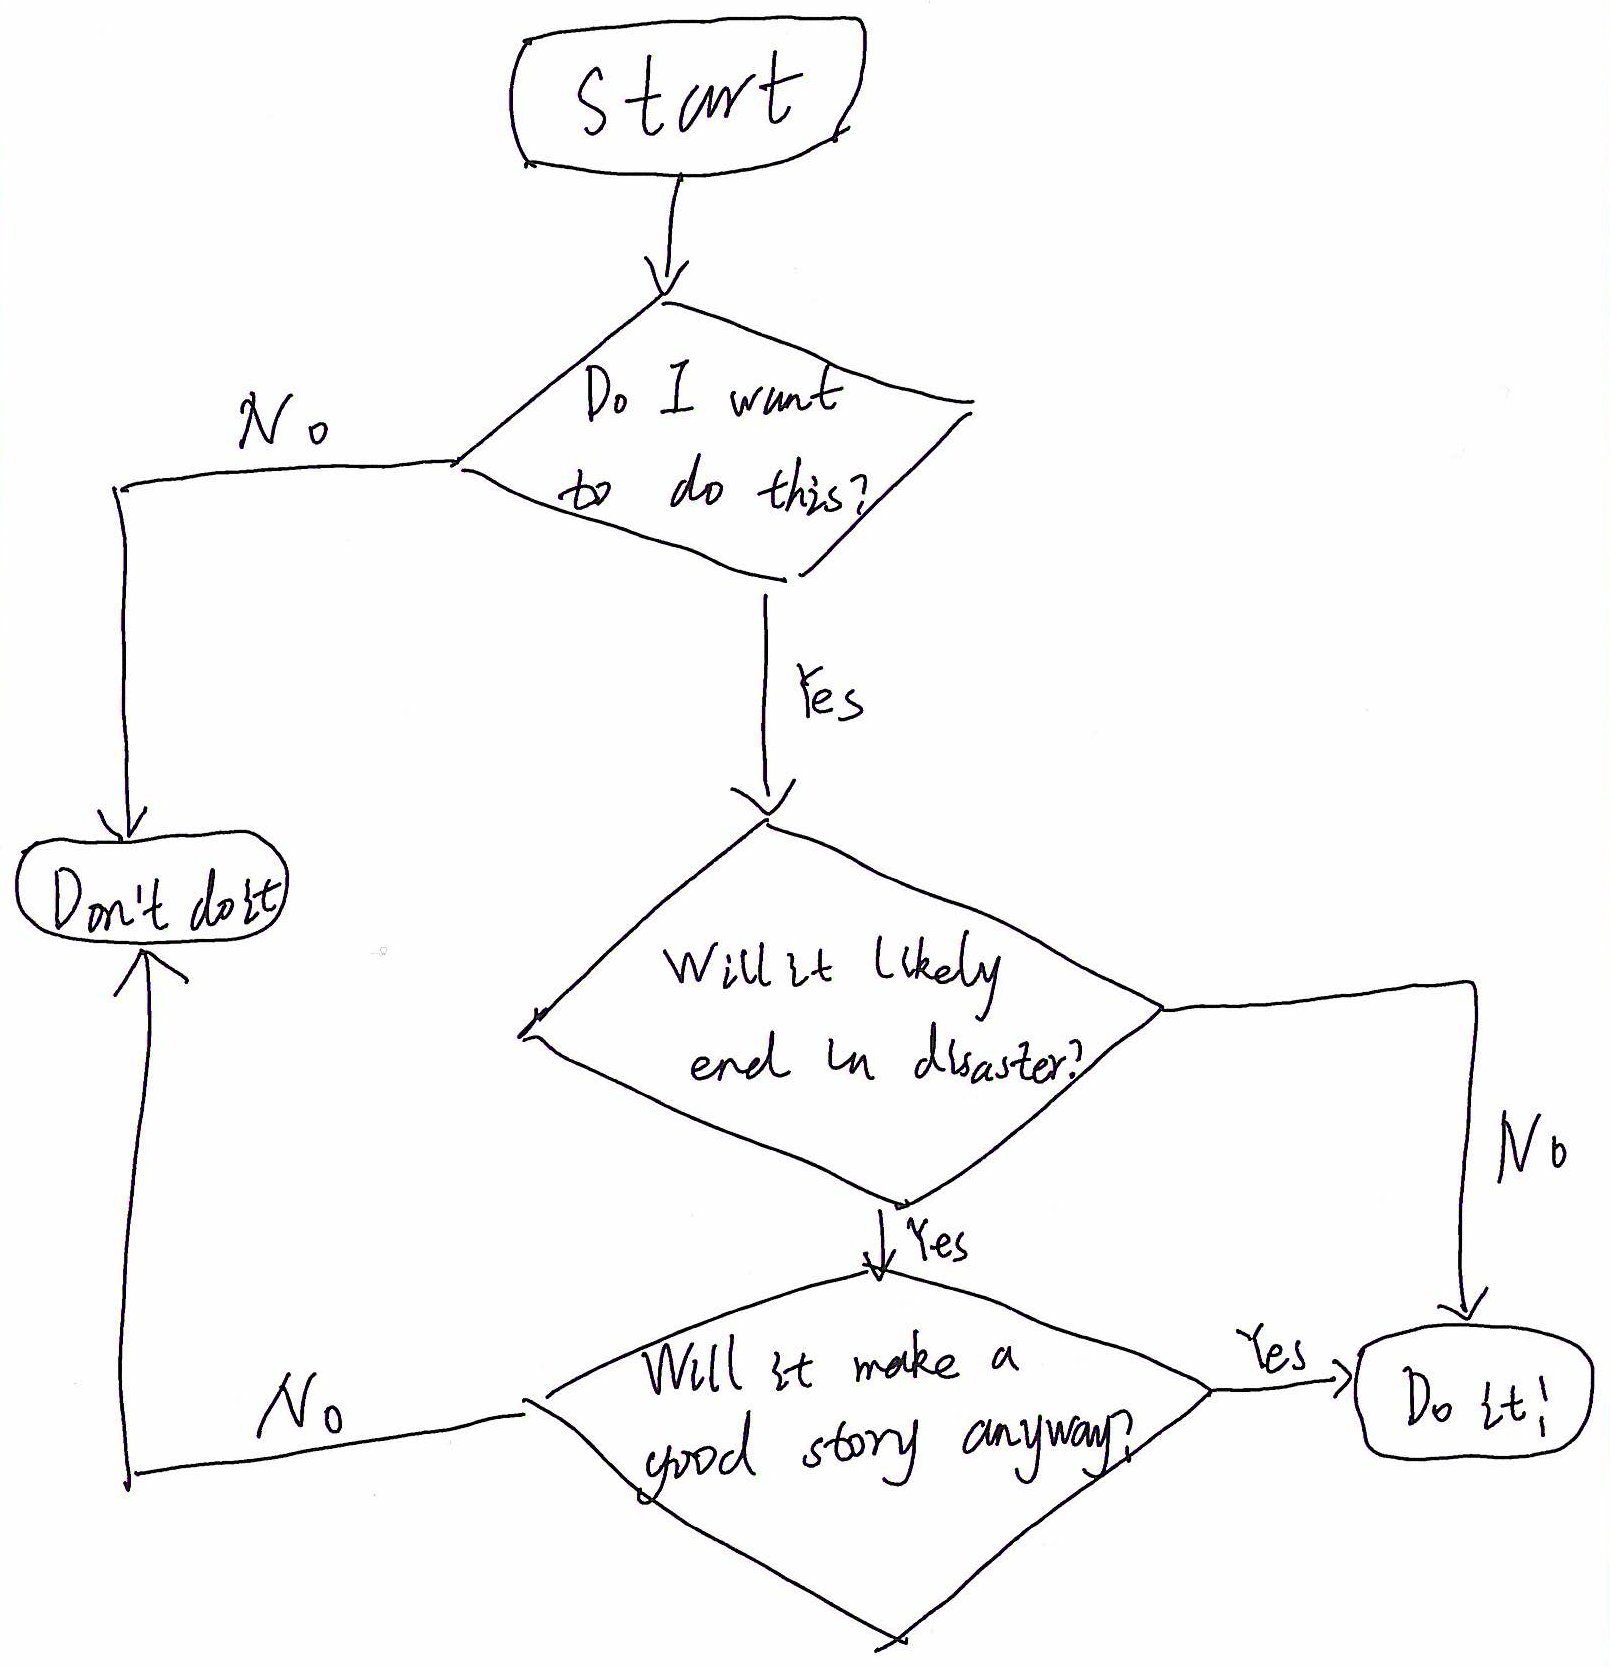 Start
Do I want
to do this?
No
Yes
Don't do it
Will it likely
end in disaster?
No
Yes
Will it make a
good story anyway?
Yes
Do it!
No